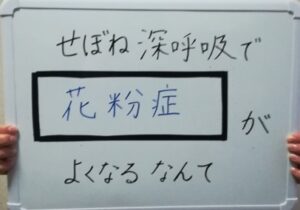 せぼね深呼吸で
花粉症が
よくなるなんて